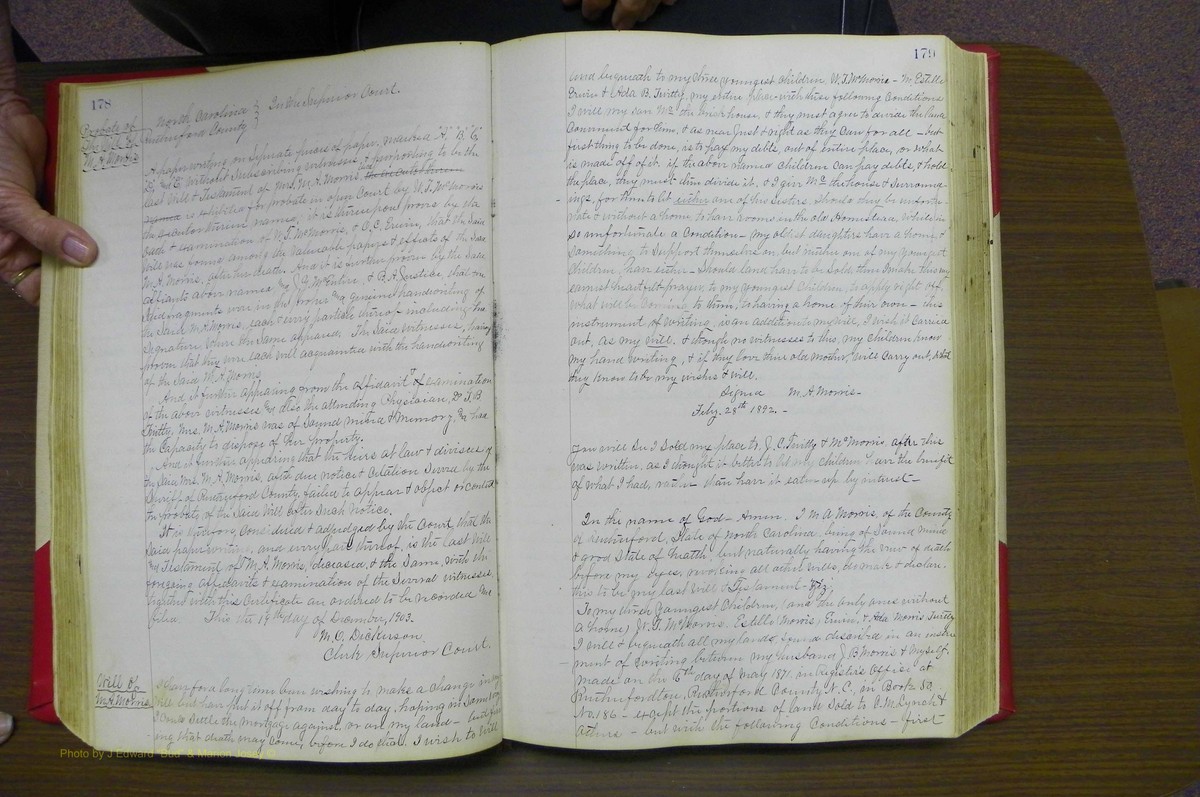 178
Probate of
the Will of
M. A. Morris
North Carolina } In the Superior Court.
Rutherford County }
A paper writing on separate pieces of paper, marked "A" "B" "C"
D, and E without subscribing witnesses, & purporting to be the
last Will & Testament of Mrs. M. A. Morris,
is exhibited for probate in open Court by W. T. McMorris
the executor therein named, it is thereupon proven by the
oath & examination of W. T. McMorris, & O. C. Erwin, that the said
Will was found among the valuable papers & effects of the said
M. A. Morris, after her death. And it is further proven by the said
affiants above named and J. Y. McEntire, & B. A. Justice, that
are in the proper and genuine handwriting of
the said M. A. Morris, each & every particle thereof including the
signature when the same appears. The said witnesses, having
proven that they were each well acquainted with the handwriting
of the said M. A. Morris.
And it further appearing from the affidavit & examination
of the above witnesses and also the attending Physician, Dr T. B.
Twitty, Mrs. M. A. Morris was of sound mind & memory, and had
the Capacity to dispose of her property.
And it further appearing that the heirs at law & devisees of
the said Mrs. M. A. Morris, after due notice & Citation served by the
Sheriff of Rutherford County, failed to appear & object or contest
the probate of the said Will after such notice.
It is therefore, Considered & adjudged by the Court, that the
said paper writing, and every part thereof, is the last Will
and Testament of M. A. Morris, deceased, & the same, with the
foregoing affidavits & examination of the several witnesses,
together with this Certificate are ordered to be recorded and
filed. This the 19th day of December, 1903.
M. O. Dickerson
Clerk Superior Court.
Will of
M. A. Morris
I have for a long time been wishing to make a change in my
will but have put it off from day to day, hoping in some way
I could settle the mortgage against, or on my land -
ing that death may come, before I do that. I wish to Will
179
and bequeath to my three youngest children, W. T. McMorris - M. Estelle
Erwin & Ada B. Twitty, my entire place with these following Conditions
I will my son Mc the brick house, & they must agree to divide the land
Convenient for them, & as near just & right as they can for all - but
first thing to be done, is to pay my debts, out of entire place, or what
is made off of it. if the above named children can pay debts, & hold
the place, they must then divide it. & I give Mc the house & surround-
ings, for them to let either one of his sisters, should they be unfortu-
nate & without a home, to have rooms in the old Homestead, while in
so unfortunate a Condition - my oldest daughters have a home &
something to support themselves on, but neither one of my youngest
Children, have either - Should land have to be sold, then I make this my
earnest heartfelt prayer, to my youngest Children, to apply right off,
what will be coming to them, to having a home of their own - this
instrument of writing, is an addition to my Will, I wish it carried
out, as my will. & though no witnesses to this, my children know
my hand writing, & if they love their old mother, will carry out, what
they know to be my wishes & will.
Signed M. A. Morris -
Feby. 28th 1892. -
You will see I sold my place to J. C. Twitty & Mc Morris, after this
was written, as I thought it better to let my children have the benefit
of what I had, rather than have it eaten up by interest -
In the name of God - Amen. I M. A. Morris, of the County
of Rutherford, State of North Carolina, being of sound mind
& good State of health, but naturally having the view of death
before my eyes, revoking all other wills, do make & declare
this to be my last Will & Testament - Viz;
To my three youngest Children, (and the only ones without
a home) W. T. McMorris, Estelle (Morris) Erwin, & Ada Morris Twitty
I will & bequeath all my lands, found described in an instru-
ment of writing between my husband J B Morris & myself,
made on the 6th day of May 1871, in Register's Office at
Rutherfordton, Rutherford County N. C, in Book 30,
No. 186 - except the portions of land sold to & Lynch &
others - but with the following Conditions - First
Photo by J Edward "Bud" & Marion Josey ©